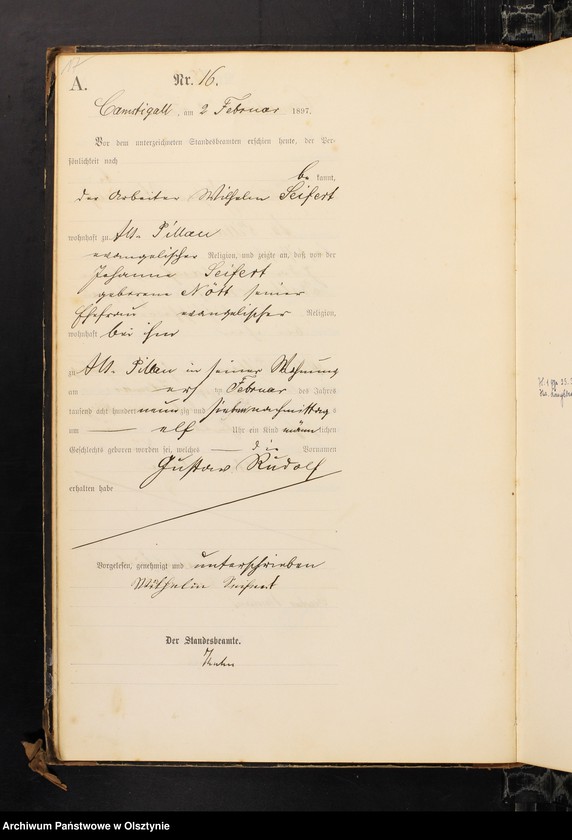 17
A.
Nr. 16.
Camstigall, am 2 Februar 1897.
Vor dem unterzeichneten Standesbeamten erschien heute, der Per-
sönlichkeit nach
be kannt,
der Arbeiter Wilhelm Seifert
wohnhaft zu Alt-Pillau
evangelischer Religion, und zeigte an, daß von der
Johanne Seifert
geborene Nött seiner
Ehefrau evangelischer Religion,
wohnhaft bei ihm
zu Alt-Pillau in seiner Wohnung
am ersten Februar des Jahres
tausend acht hundert neunzig und sieben nachmittags
um elf Uhr ein Kind männlichen
Geschlechts geboren worden sei, welches die Vornamen
Gustav Rudolf
erhalten habe
Vorgelesen, genehmigt und unterschrieben
Wilhelm Seifert
Der Standesbeamte.
Archiwum Państwowe w Olsztynie